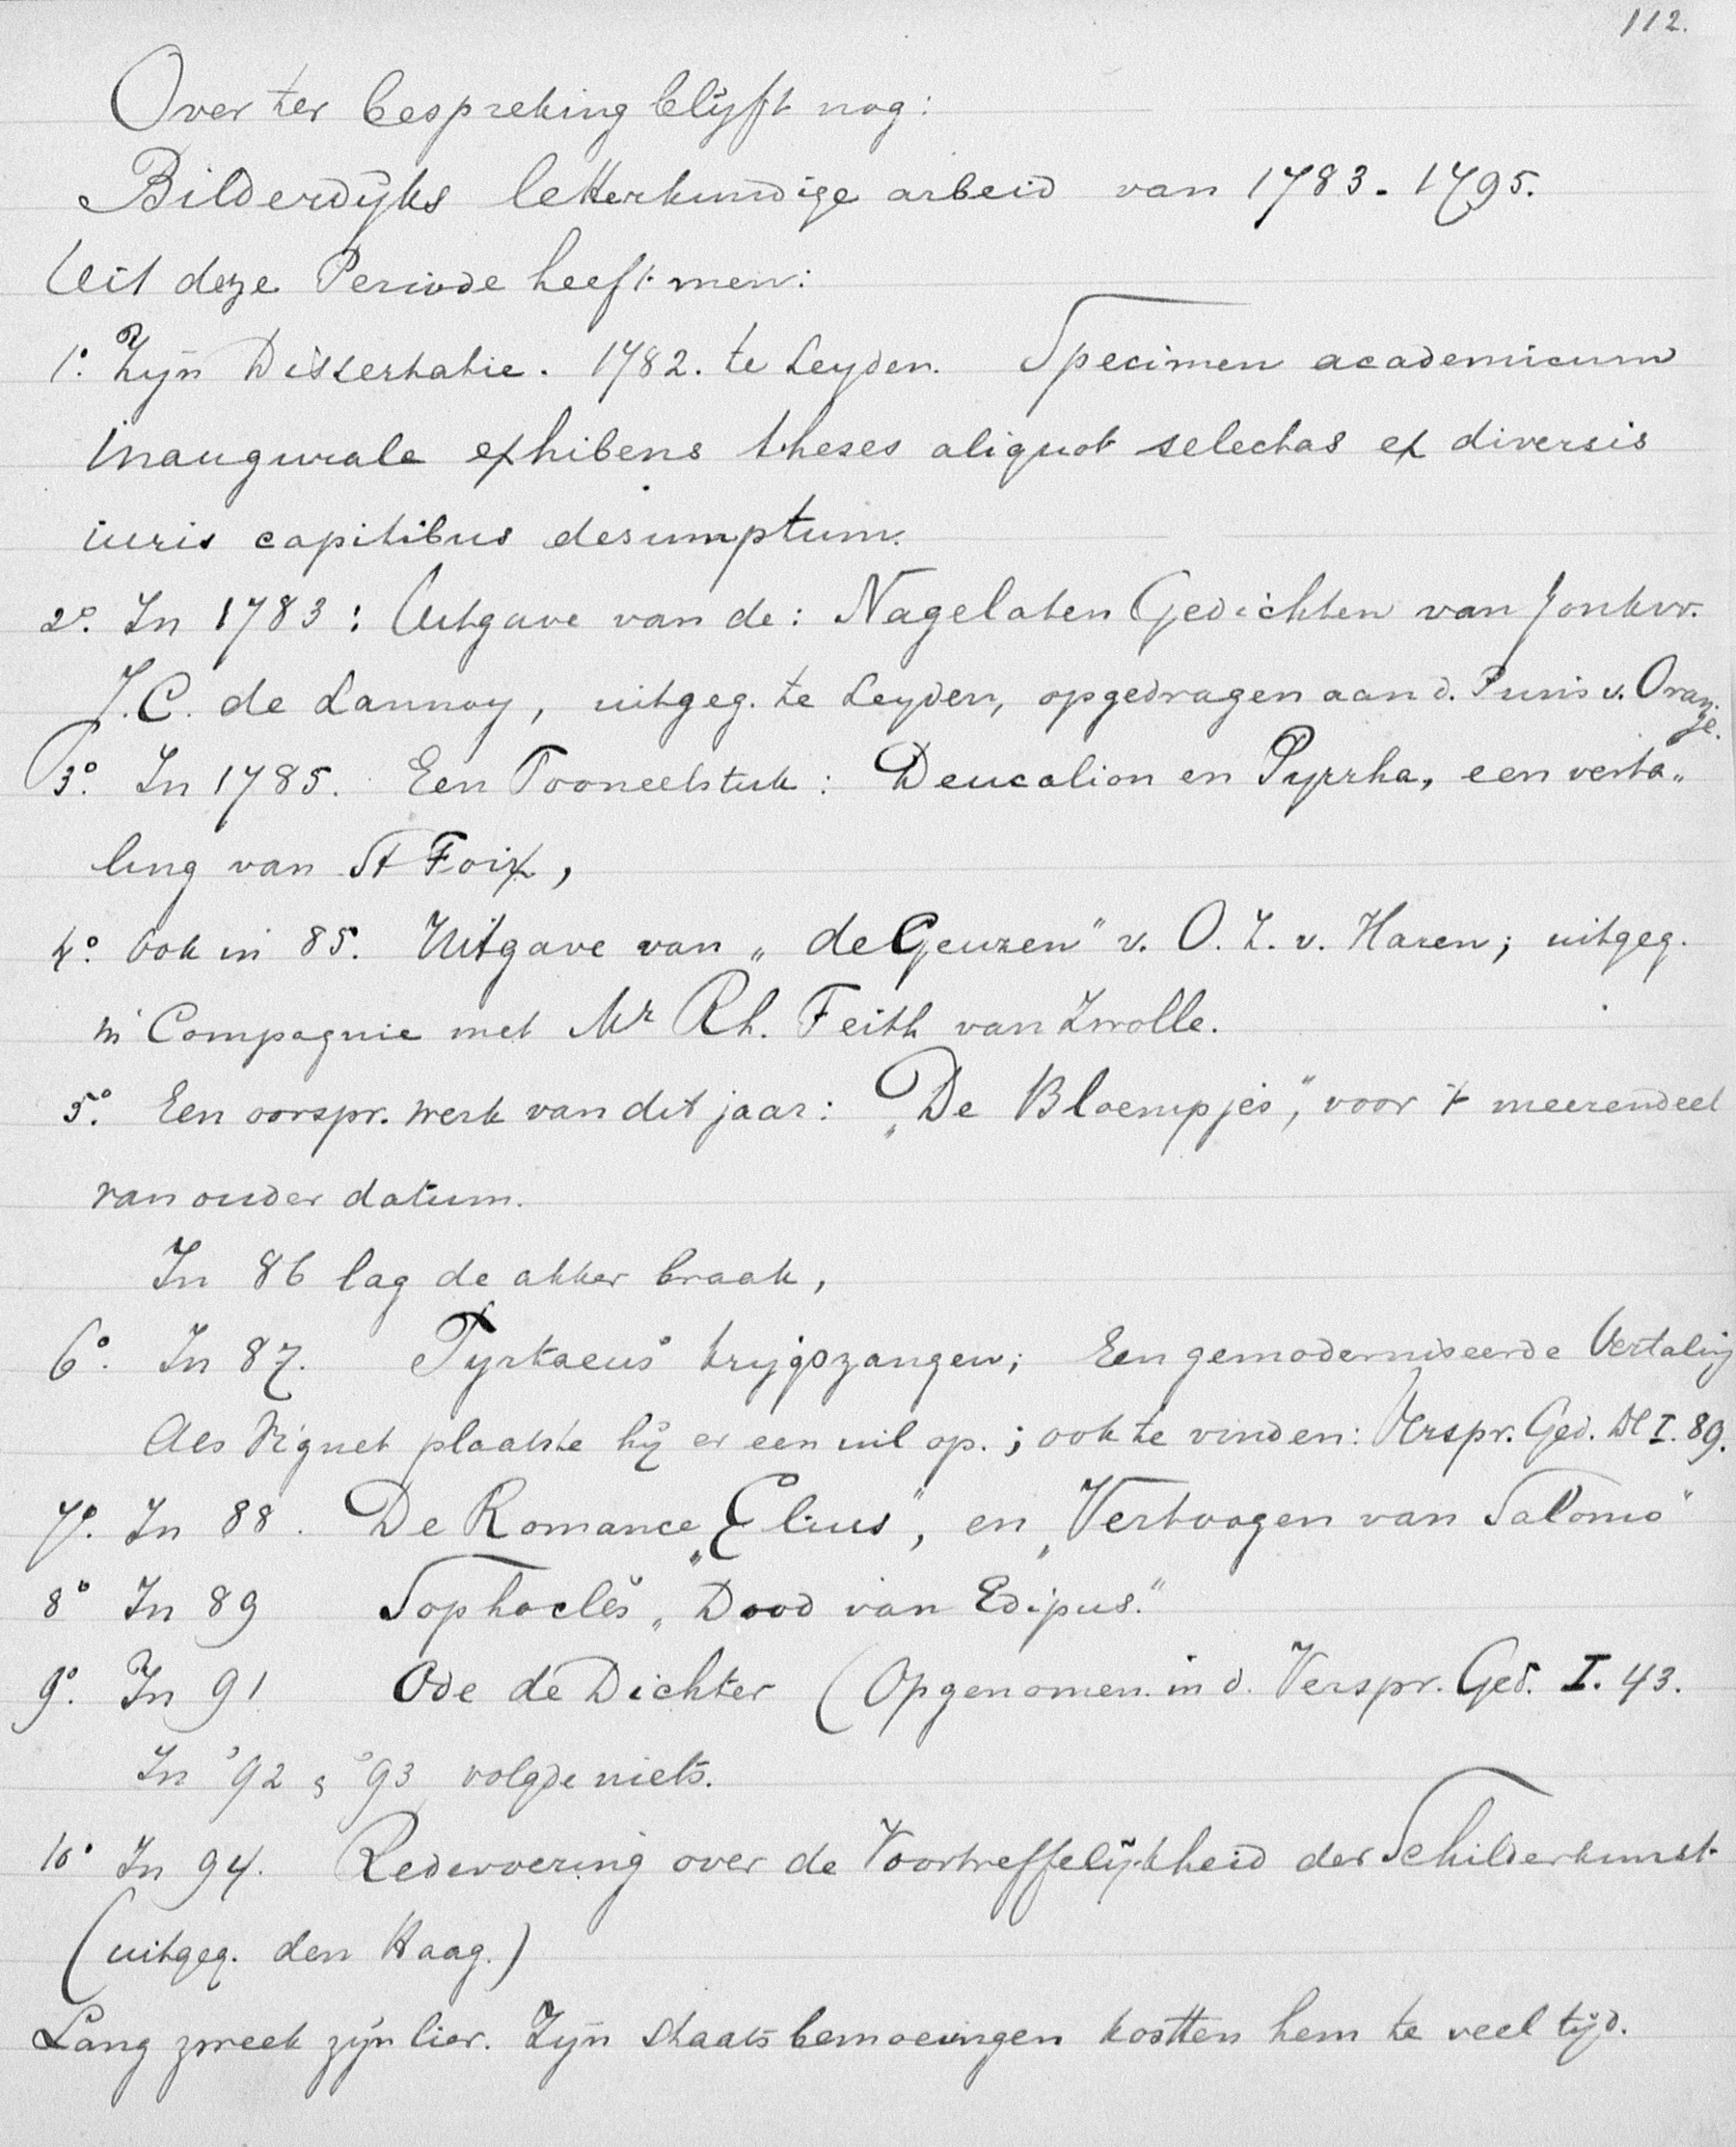 112.
Over ter bespreking blijft nog:
Bilderdijks letterkundige arbeid van 1783-1795.
Uit deze Periode heeft men:
1o. Zijn Dissertatie. 1782. te Leyden. Specimen academicum
inaugurale exhibens theses aliquot selectas ex diversis
iuris capitibus desumptum.
2o. In 1783: Uitgave van de: Nagelaten Gedichten van Jonkvr.
J.C. de Lannoy, uitgeg. te Leyden, opgedragen aan d. Prins v. Oranje.
3o. In 1785. Een Tooneelstuk: Deucalion en Pyrrha, een verta„
ling van St Foix,
4o. Ook in 85. Uitgave van „de Geuzen” v. O. Z. v. Haren; uitgeg.
in Compagnie met Mr Rh. Feith van Zwolle.
5o. Een oorspr. werk van dit jaar: „De Bloempjes”, voor 't meerendeel
van ouder datum.
In 86 lag de akker braak,
6o. In 87. Tyrtaeus' krijgszangen; Een gemoderniseerde Vertaling
Als Vignet plaatste hij er een uil op.; ook te vinden: Verspr. Ged. Dl I. 89.
7o. In 88. De Romance „Elius”, en „Vertoogen van Salomo”
8o In 89 Sophocles' „Dood van Edipus.”
9o. In 91 Ode de Dichter (Opgenomen in d. Verspr. Ged. I. 43.
In '92 & '93 volgde niets.
10o In 94. Redevoering over de Voortreffelijkheid der Schilderkunst
(uitgeg. den Haag.)
Lang zweek zijn lier. Zijn staatsbemoeiingen kostten hem te veel tijd.